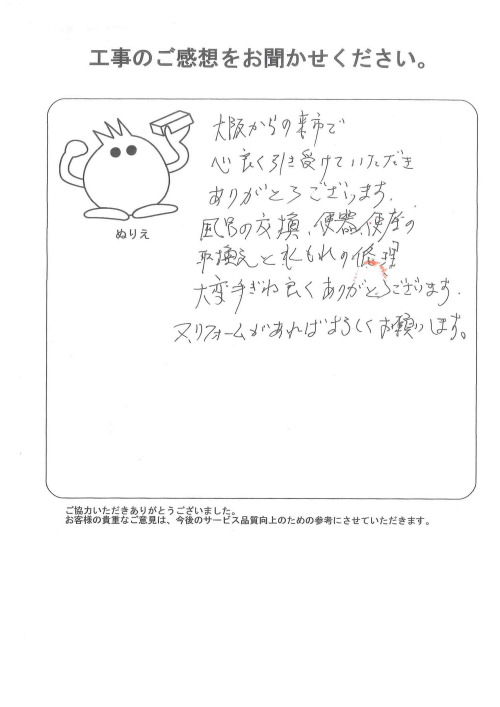 工事のご感想をお聞かせください。
大阪からの来市で
心良く引き受けていただき
ありがとうございます。
ぬりえ
風呂の交換、便器、便座の
取換えと水もれの修理
大変手ぎわ良くありがとうございます.
又、リフォームがあればよろしくお願いします。
ご協力いただきありがとうございました。
お客様の貴重なご意見は、今後のサービス品質向上のための参考にさせていただきます。